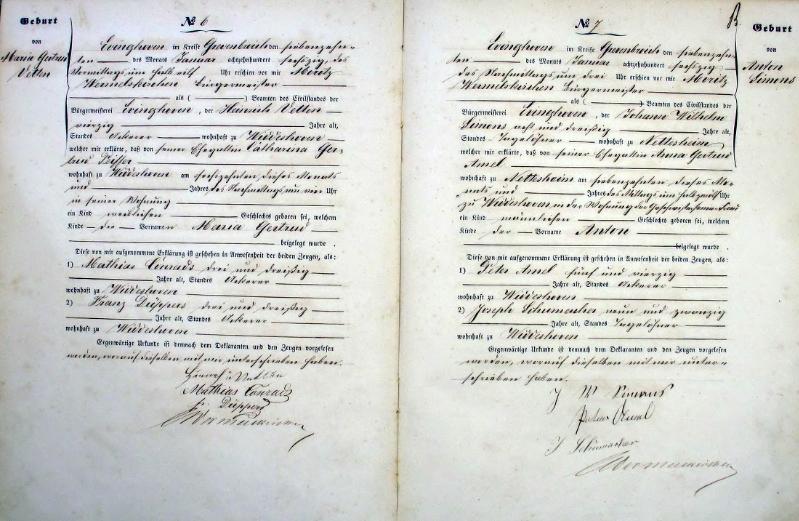 Geburt
von
Maria Gertrud
Vetten
№ 6
Evinghoven im Kreise Grevenbroich den siebenzehn-
ten des Monats Januar achtzehnhundert sechszig, des
Vormittags um halb elf Uhr erschien vor mir Moritz
Wermelskirchen Bürgermeister
als ( ) Beamten des Civilstandes der
Bürgermeisterei Evinghoven, der Heinrich Vetten
vierzig Jahre alt,
Standes Ackerer wohnhaft zu Widdeshoven
welcher mir erklärte, daß von seiner Ehegattin Catharina Ger-
trud
wohnhaft zu Widdeshoven am sechszehnten dieses Monats
und Jahres des Nachmittags um vier Uhr
in seiner Wohnung
ein Kind weiblichen Geschlechts geboren sei, welchem
Kinde die Vornamen Maria Gertrud
beigelegt wurde.
Diese von mir aufgenommene Erklärung ist geschehen in Anwesenheit der beiden Zeugen, als:
1) Mathias Conrads drei und dreißig
Jahre alt, Standes Ackerer
wohnhaft zu Widdeshoven
2) Franz Düppers drei und dreißig
Jahre alt, Standes Ackerer
wohnhaft zu Widdeshoven
Gegenwärtige Urkunde ist demnach dem Deklaranten und den Zeugen vorgelesen
worden, worauf dieselben mit mir unterschrieben haben.
Mathias Conrads
Düppers
Wermelskirchen
№ 7
Geburt
von
Anton
Simons
Evinghoven im Kreise Grevenbroich den siebenzehn-
ten des Monats Januar achtzehnhundert sechszig
des Nachmittags um drei Uhr erschien vor mir Moritz
Wermelskirchen Bürgermeister
als ( ) Beamten des Civilstandes der
Bürgermeisterei Evinghoven, der Johann Wilhelm
Simons acht und dreißig Jahre alt,
Standes Tagelöhner wohnhaft zu Nettesheim
welcher mir erklärte, daß von seiner Ehegattin Anna Gertrud
Amel
wohnhaft zu Nettesheim am siebenzehnten dieses Mo-
nats und Jahres des Mittags um halb zwölf Uhr
zu Widdeshoven in der Wohnung der
ein Kind männlichen Geschlechts geboren sei, welchem
Kinde der Vorname Anton
beigelegt wurde.
Diese von mir aufgenommene Erklärung ist geschehen in Anwesenheit der beiden Zeugen, als:
1) Peter Amel fünf und vierzig
Jahre alt, Standes Ackerer
wohnhaft zu Widdeshoven
2) Joseph Schumacher neun und zwanzig
Jahre alt, Standes Tagelöhner
wohnhaft zu Widdeshoven
Gegenwärtige Urkunde ist demnach dem Deklaranten und den Zeugen vorgelesen
worden, worauf dieselben mit mir unter-
schrieben haben.
J W Simons
Peter Amel
J Schumacher
Wermelskirchen